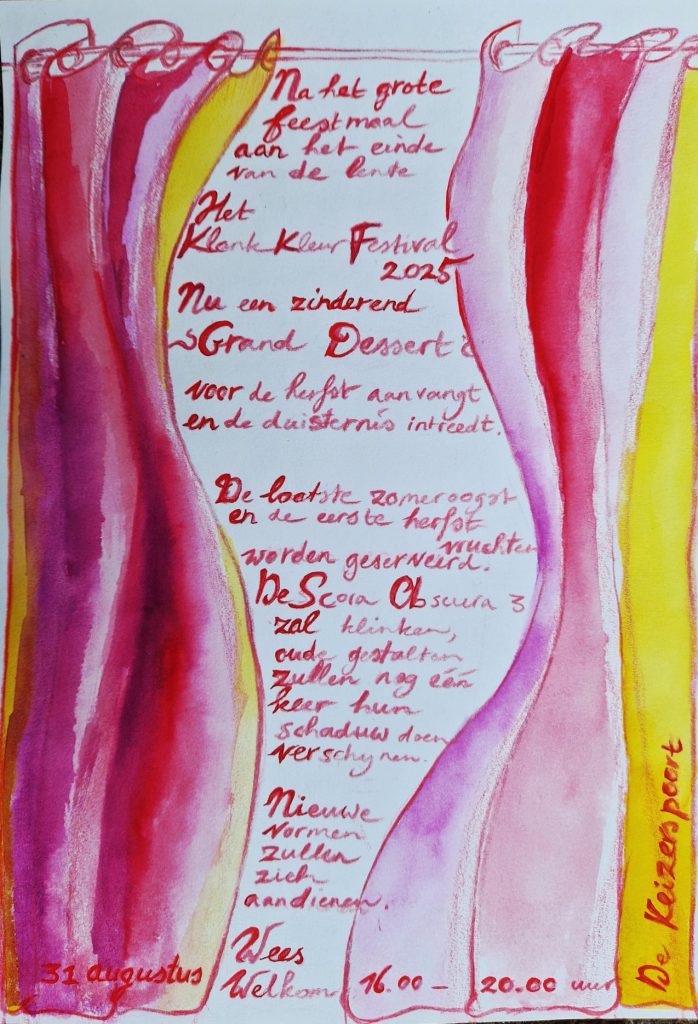 Na het grote
feestmaal
aan het einde
van de lente
Het
Klank Kleur Festival
2025
Nu een zinderend
Grand Dessert
voor de herfst aanvangt
en de duisternis intreedt.
De laatste zomeroogst
en de eerste herfst
vruchten
worden geserveerd.
De Scora Obscura 3
zal klinken,
oude gestalten
zullen nog één
keer hun
schaduw doen
verschynen.
Nieuwe
vormen
zullen
zich
aandienen.
Wees
Welkom
31 augustus
16.00 - 20.00 uur
De Keizerspoort